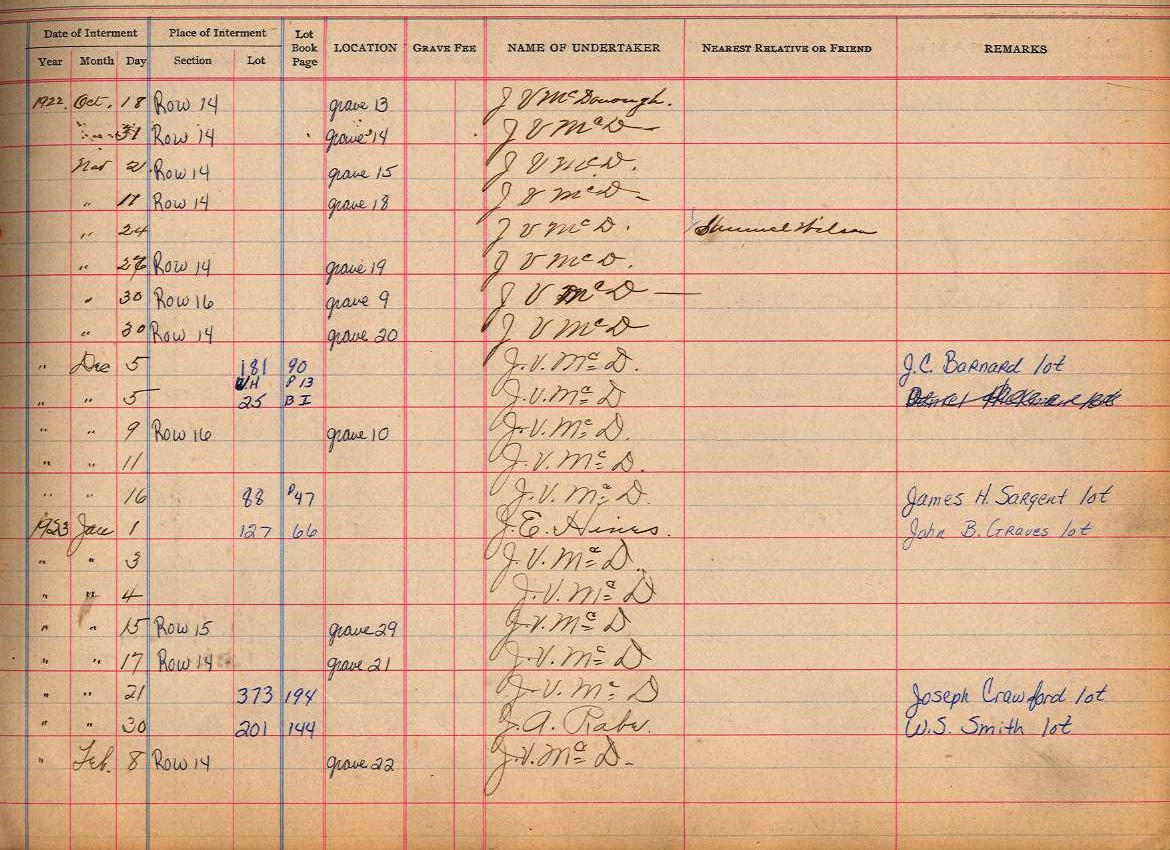 Date of Interment Place of Interment Lot Book Page LOCATION GRAVE FEE NAME OF UNDERTAKER NEAREST RELATIVE OR FRIEND REMARKS
Year Month Day Section Lot
1922. Oct. 18 Row 14 grave 13 J V McDonough.
31 Row 14 grave 14 J V McD
Nov 2 Row 14 grave 15 J V McD.
" 17 Row 14 grave 18 J V McD
" 24 J V McD. Samuel Wilson
" 26 Row 14 grave 19 J V McD.
" 30 Row 16 grave 9 J V McD —
" 30 Row 14 grave 20 J V McD
" Dec 5 181 90 J. V. McD. J.C. Barnard lot
V.H P 13
" " 5 25 B I J. V. McD
" " 9 Row 16 grave 10 J. V. McD.
" " 11 J. V. McD.
" " 16 88 P 47 J. V. McD. James H. Sargent lot
1923 Jan 1 127 66 J. E. Hines. John B. Graves lot
" " 3 J. V. McD.
" " 4 J. V. McD
" " 15 Row 15 grave 29 J. V. McD
" " 17 Row 14 grave 21 J. V. McD
" " 21 373 194 J. V. McD Joseph Crawford lot
" " 30 201 144 J. A. Rabe. W.S. Smith lot
" Feb. 8 Row 14 grave 22 J. V. McD.